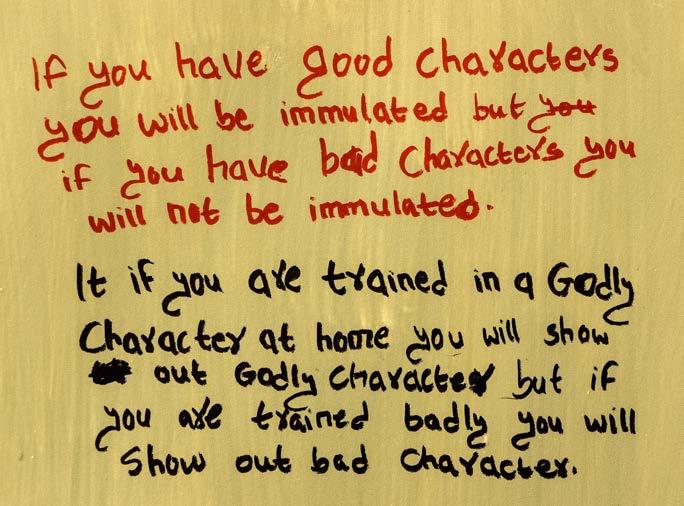 If you have good characters
you will be immulated but you
if you have bad characters you
will not be immulated.
It if you are trained in a Godly
Character at home you will show
out Godly character but if
you are trained badly you will
show out bad character.